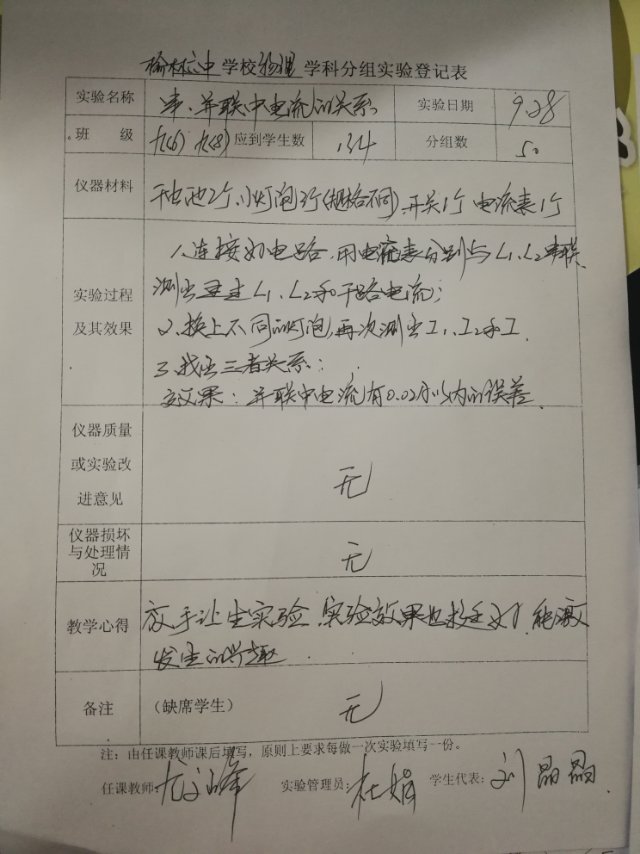 榆林六中学校物理学科分组实验登记表
实验名称 串、并联中电流的关系 实验日期 9.28
班 级 九(6) 九(8) 应到学生数 134 分组数 50
仪器材料 干电池2个,小灯泡3个(规格不同),开关1个 电流表1个
实验过程及其效果
1、连接好电路,用电流表分别与L1、L2串联
测出通过L1、L2和干路电流;
2、换上不同的灯泡,再次测出I1、I2和I.
3、找出三者关系:
效果:并联中电流有0.02A以内的误差.
仪器质量或实验改进意见 无
仪器损坏与处理情况 无
教学心得 放手让生实验,实验效果也挺好,能激
发生的兴趣.
备注 (缺席学生) 无
注:由任课教师课后填写,原则上要求每做一次实验填写一份。
任课教师: 实验管理员:杜娟 学生代表:刘晶晶